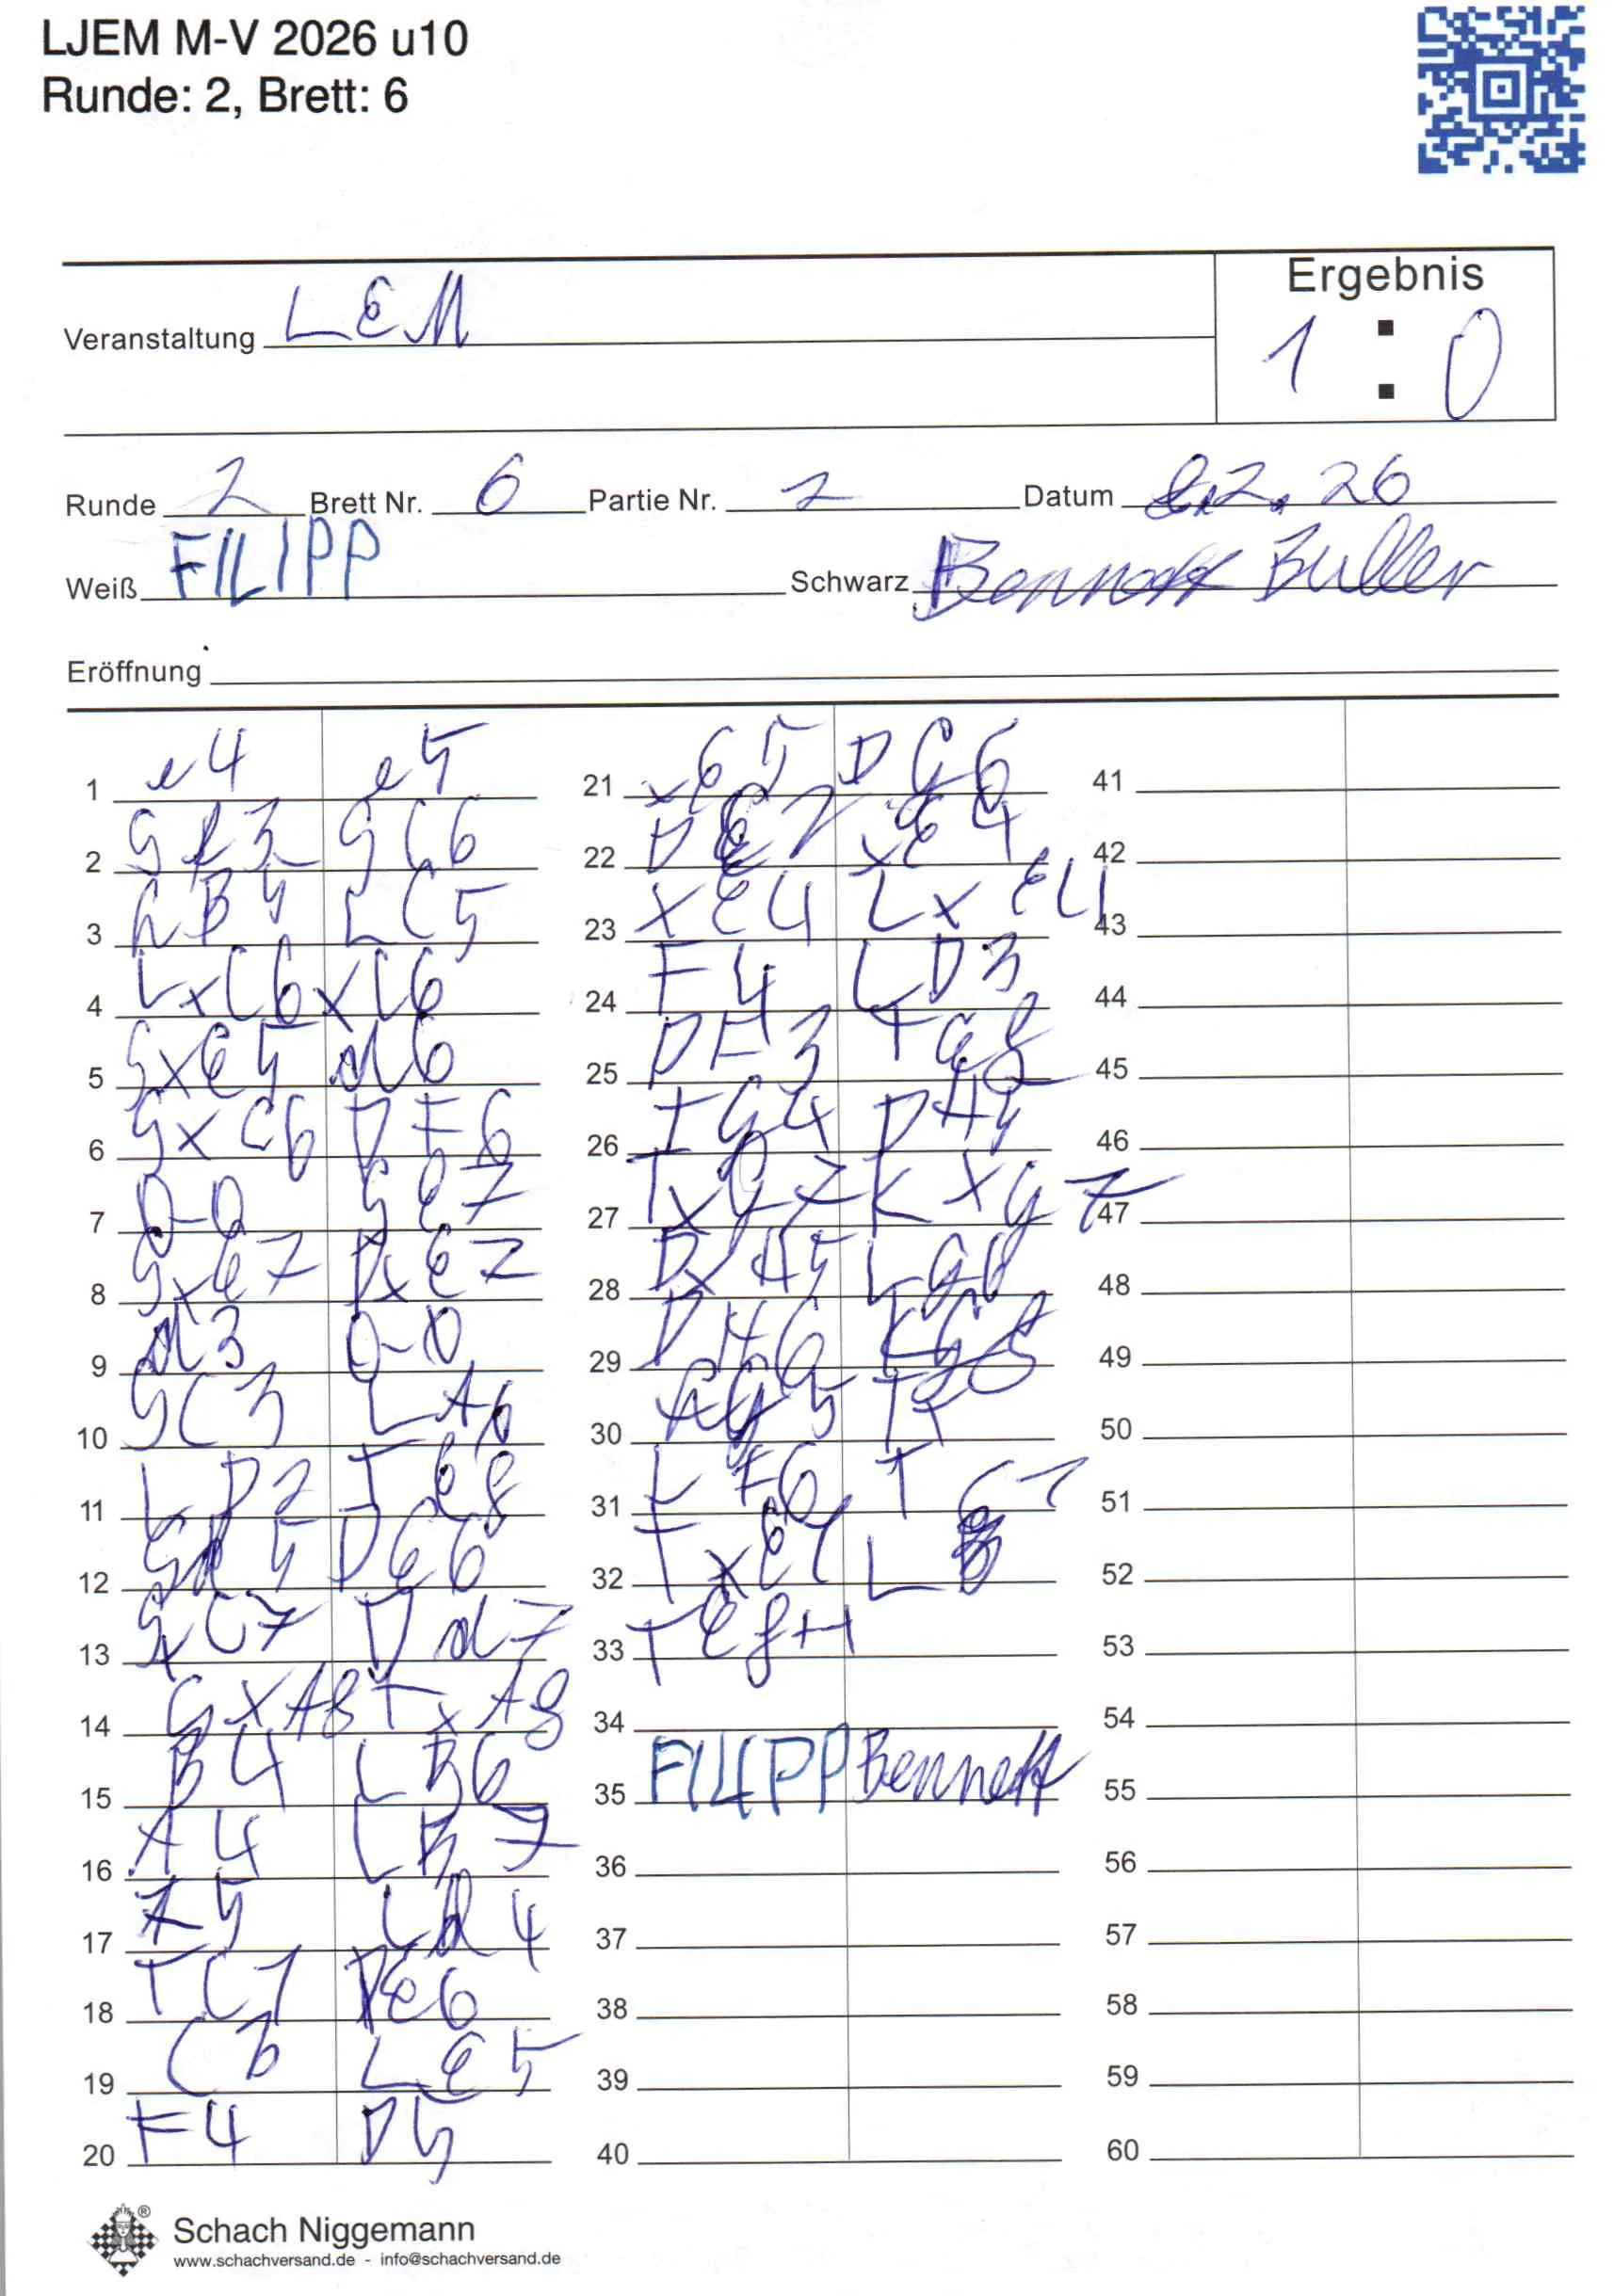 LJEM M-V 2026 u10
Runde: 2, Brett: 6
Ergebnis
Veranstaltung LEM
1 : 0
Runde 2 Brett Nr. 6 Partie Nr. 2 Datum 2.26
Weiß FILIPP Schwarz Bennett Buller
Eröffnung
1 e4 e5
2 Sf3 SC6
3 LB5 LC5
4 LxC6 xC6
5 SxE5 d6
6 SxC6 DF6
7 0-0 SE7
8 SxE7 DxE7
9 d3 0-0
10 SC3 LA6
11 LD2 TE8
12 Sd5 DE6
13 SxC7 Dd7
14 SxA8 TxA8
15 B4 LB6
16 A4 LB7
17 A5 Ld4
18 TC1 DE6
19 C3 LE5
20 F4 D5
21 xE5 DG6
22 DE2 xE4
23 xE4 LxE4
24 F4 LD3
25 DF3
26 TG4 DH5
27 TxG7 Kxg7
28 DxH5 LG6
29 DH6 KG8
30
31 LF6 T
32 L
33 TE8++
34
35 FILIPP Bennett
36
37
38
39
40
41
42
43
44
45
46
47
48
49
50
51
52
53
54
55
56
57
58
59
60
Schach Niggemann
www.schachversand.de - info@schachversand.de